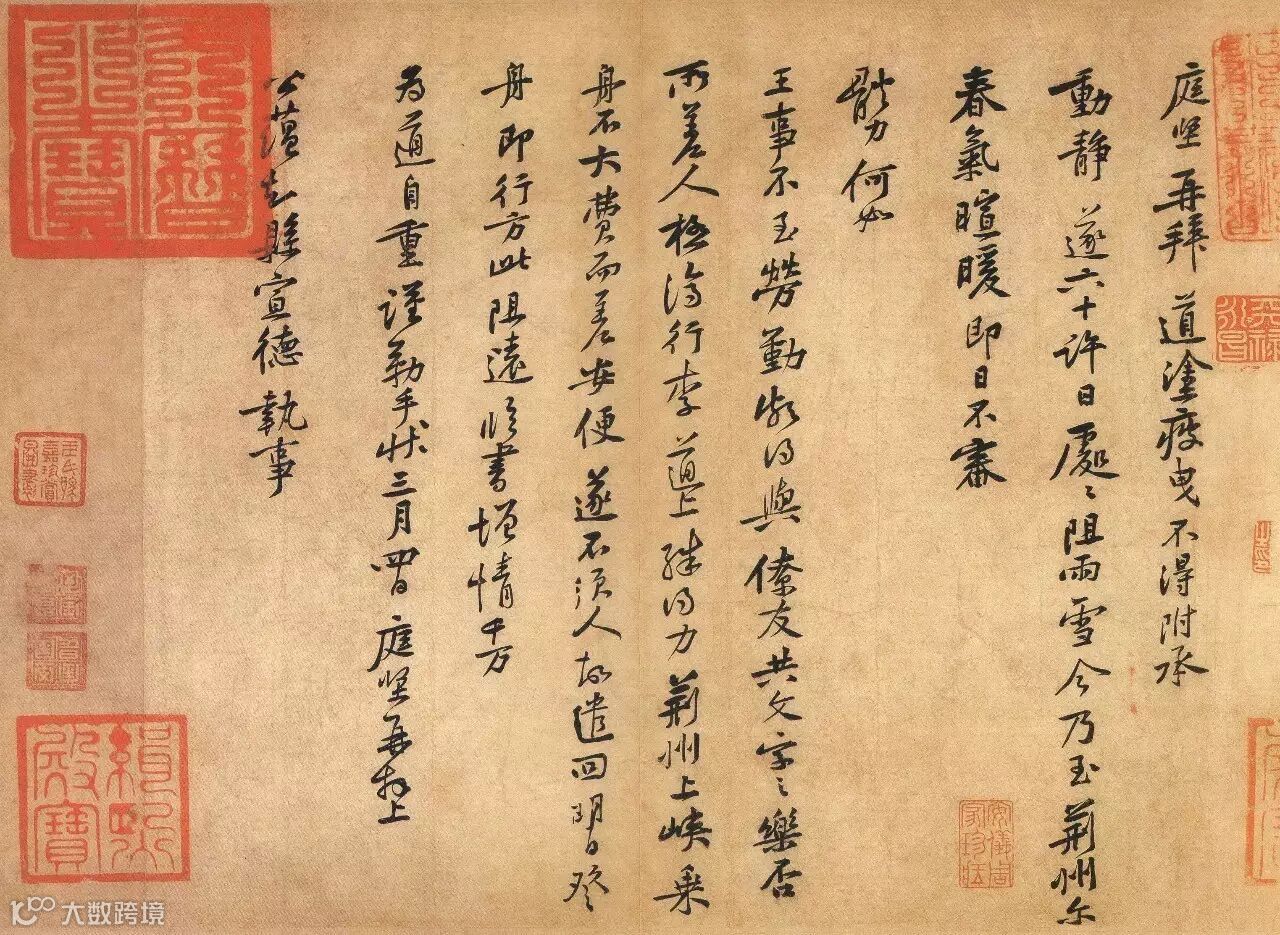 庭坚再拜道塗疲曳不得附承
動静遂六十许日處〻阻雨雪今乃至荆州尔
春氣暄暖即日不審
體力何如
王事不至劳勤頗得與僚友共文字之樂否
所差人極濟行李道上殊得力荆州上峡乘
舟不大費而差安便遂不须人故遣回明日發
舟即行方此阻遠临書增情千万
为道自重謹勒手状三月四日庭坚再拜上
公蕴知縣宣德執事
大数跨境